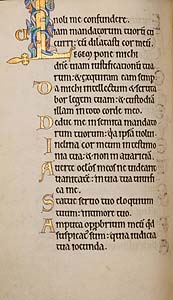 noli me confundere.
Viam mandatorum tuorum cu
curri: cū dilatasti cor meū.
Legem pone michi
dñe uiam iustificationū tua
rum: & exquiram eam semp.
Da michi intellectum & scruta
bor legem tuam: & custodiā
illam in toto corde meo.
Deduc me in semita manda
torum tuorum: quia ipsā uolui.
Inclina cor meum in testimo
nia tua: & non in auariciā.
Auerte oclos meos ne uideant
uanitatē: in uia tua uiuifi
ca me.
Statue seruo tuo eloquium
tuum: in timore tuo.
Amputa opprbrium meū qd
suspicatus sum: quia iudicia
tua iocunda.